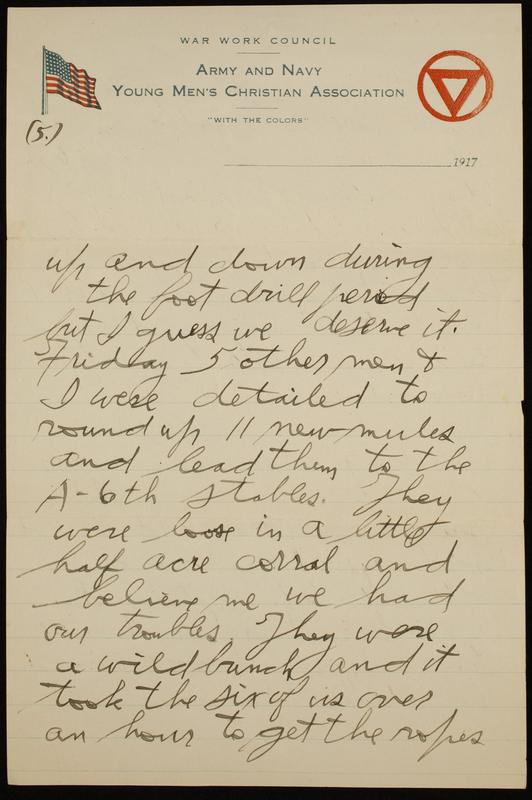 WAR WORK COUNCIL
ARMY AND NAVY
YOUNG MEN'S CHRISTIAN ASSOCIATION
"WITH THE COLORS"
(5.)
1917
up and down during
the foot drill period
but I guess we deserve it.
Friday 5 other men &
I were detailed to
round up 11 new mules
and lead them to the
A-6th stables. They
were loose in a little
half acre corral and
believe me we had
our troubles. They were
a wild bunch and it
took the six of us over
an hour to get the ropes